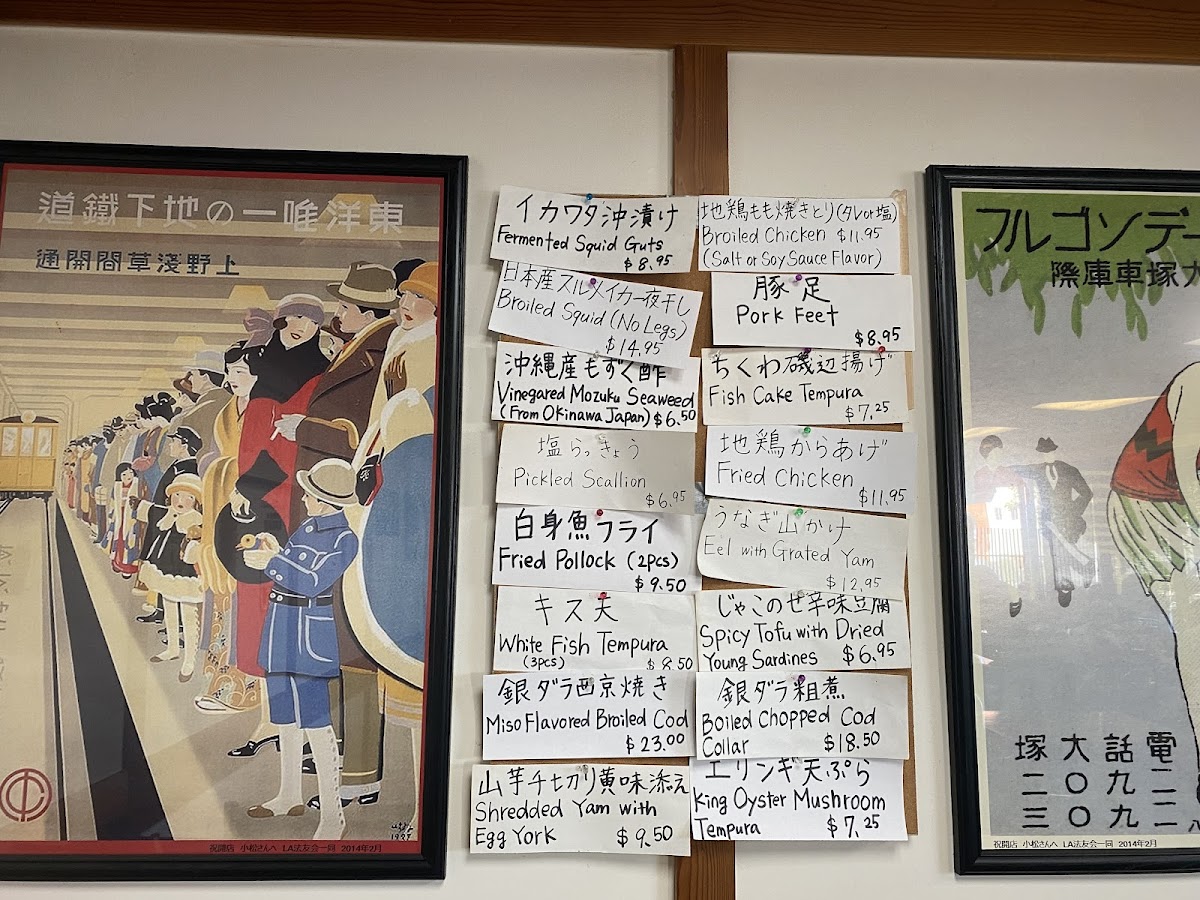 東洋唯一の地下鐵道
上野淺草間開通
祝開店 小松さんへ LA法友会一同 2014年2月
イカワタ沖漬け
Fermented Squid Guts
$8.95
日本産スルメイカ一夜干し
Broiled Squid (No Legs)
$14.95
沖縄産もずく酢
Vinegared Mozuku Seaweed
(From Okinawa Japan) $6.50
塩らっきょう
Pickled Scallion
$6.95
白身魚フライ
Fried Pollock (2pcs)
$9.50
キス天
White Fish Tempura
(3pcs) $8.50
銀ダラ西京焼き
Miso Flavored Broiled Cod
$23.00
山芋千切り黄味添え
Shredded Yam with
Egg York $9.50
地鶏もも焼きとり(タレor塩)
Broiled Chicken $11.95
(Salt or Soy Sauce Flavor)
豚足
Pork Feet
$8.95
ちくわ磯辺揚げ
Fish Cake Tempura
$7.25
地鶏からあげ
Fried Chicken
$11.95
うなぎ山かけ
Eel with Grated Yam
$12.95
じゃこのせ辛味豆腐
Spicy Tofu with Dried
Young Sardines $6.95
銀ダラ粗煮
Boiled Chopped Cod
Collar $18.50
エリンギ天ぷら
King Oyster Mushroom
Tempura $7.25
フルゴソデー
際庫車塚
電話大塚
二九〇二
二九〇三
祝開店 小松さんへ LA法友会一同 2014年2月